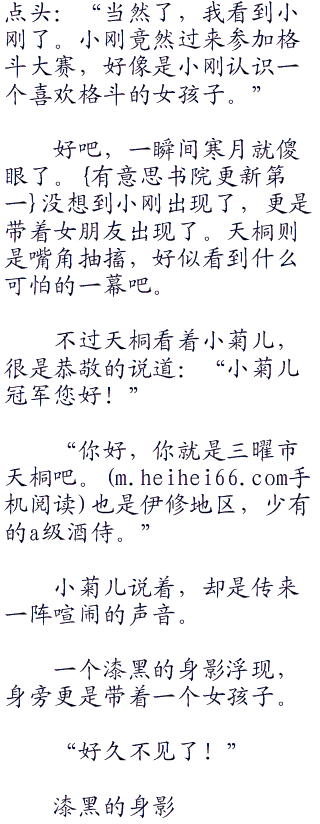 点头：“当然了，我看到小
刚了。小刚竟然过来参加格
斗大赛，好像是小刚认识一
个喜欢格斗的女孩子。”
好吧，一瞬间寒月就傻
眼了。{有意思书院更新第
一}没想到小刚出现了，更是
带着女朋友出现了。天桐则
是嘴角抽搐，好似看到什么
可怕的一幕吧。
不过天桐看着小菊儿，
很是恭敬的说道：“小菊儿
冠军您好！”
“你好，你就是三曜市
天桐吧。(m.heihei66.com手
机阅读)也是伊修地区，少有
的a级酒侍。”
小菊儿说着，却是传来
一阵喧闹的声音。
一个漆黑的身影浮现，
身旁更是带着一个女孩子。
“好久不见了！”
漆黑的身影